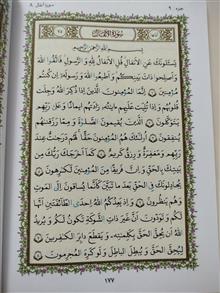 سورة أنفال ٨
جزء ٩
سورة الأنفال
بسم الله الرحمن الرحيم
يَسْـَٔلُونَكَ عَنِ الْأَنفَالِ قُلِ الْأَنفَالُ لِلَّهِ وَالرَّسُولِ فَاتَّقُوا اللَّهَ
وَأَصْلِحُوا ذَاتَ بَيْنِكُمْ وَأَطِيعُوا اللَّهَ وَرَسُولَهُ إِن كُنتُم
مُّؤْمِنِينَ ۝ إِنَّمَا الْمُؤْمِنُونَ الَّذِينَ إِذَا ذُكِرَ اللَّهُ وَجِلَتْ
قُلُوبُهُمْ وَإِذَا تُلِيَتْ عَلَيْهِمْ ءَايَاتُهُ زَادَتْهُمْ إِيمَانًا وَعَلَىٰ رَبِّهِمْ
يَتَوَكَّلُونَ ۝ الَّذِينَ يُقِيمُونَ الصَّلَاةَ وَمِمَّا رَزَقْنَاهُمْ
يُنفِقُونَ ۝ أُولَٰئِكَ هُمُ الْمُؤْمِنُونَ حَقًّا لَّهُمْ دَرَجَاتٌ عِندَ
رَبِّهِمْ وَمَغْفِرَةٌ وَرِزْقٌ كَرِيمٌ ۝ كَمَا أَخْرَجَكَ رَبُّكَ مِن
بَيْتِكَ بِالْحَقِّ وَإِنَّ فَرِيقًا مِّنَ الْمُؤْمِنِينَ لَكَارِهُونَ ۝
يُجَادِلُونَكَ فِي الْحَقِّ بَعْدَمَا تَبَيَّنَ كَأَنَّمَا يُسَاقُونَ إِلَى الْمَوْتِ
وَهُمْ يَنظُرُونَ ۝ وَإِذْ يَعِدُكُمُ اللَّهُ إِحْدَى الطَّائِفَتَيْنِ أَنَّهَا
لَكُمْ وَتَوَدُّونَ أَنَّ غَيْرَ ذَاتِ الشَّوْكَةِ تَكُونُ لَكُمْ وَيُرِيدُ
اللَّهُ أَن يُحِقَّ الْحَقَّ بِكَلِمَاتِهِ وَيَقْطَعَ دَابِرَ الْكَافِرِينَ ۝
لِيُحِقَّ الْحَقَّ وَيُبْطِلَ الْبَاطِلَ وَلَوْ كَرِهَ الْمُجْرِمُونَ ۝
١٧٧